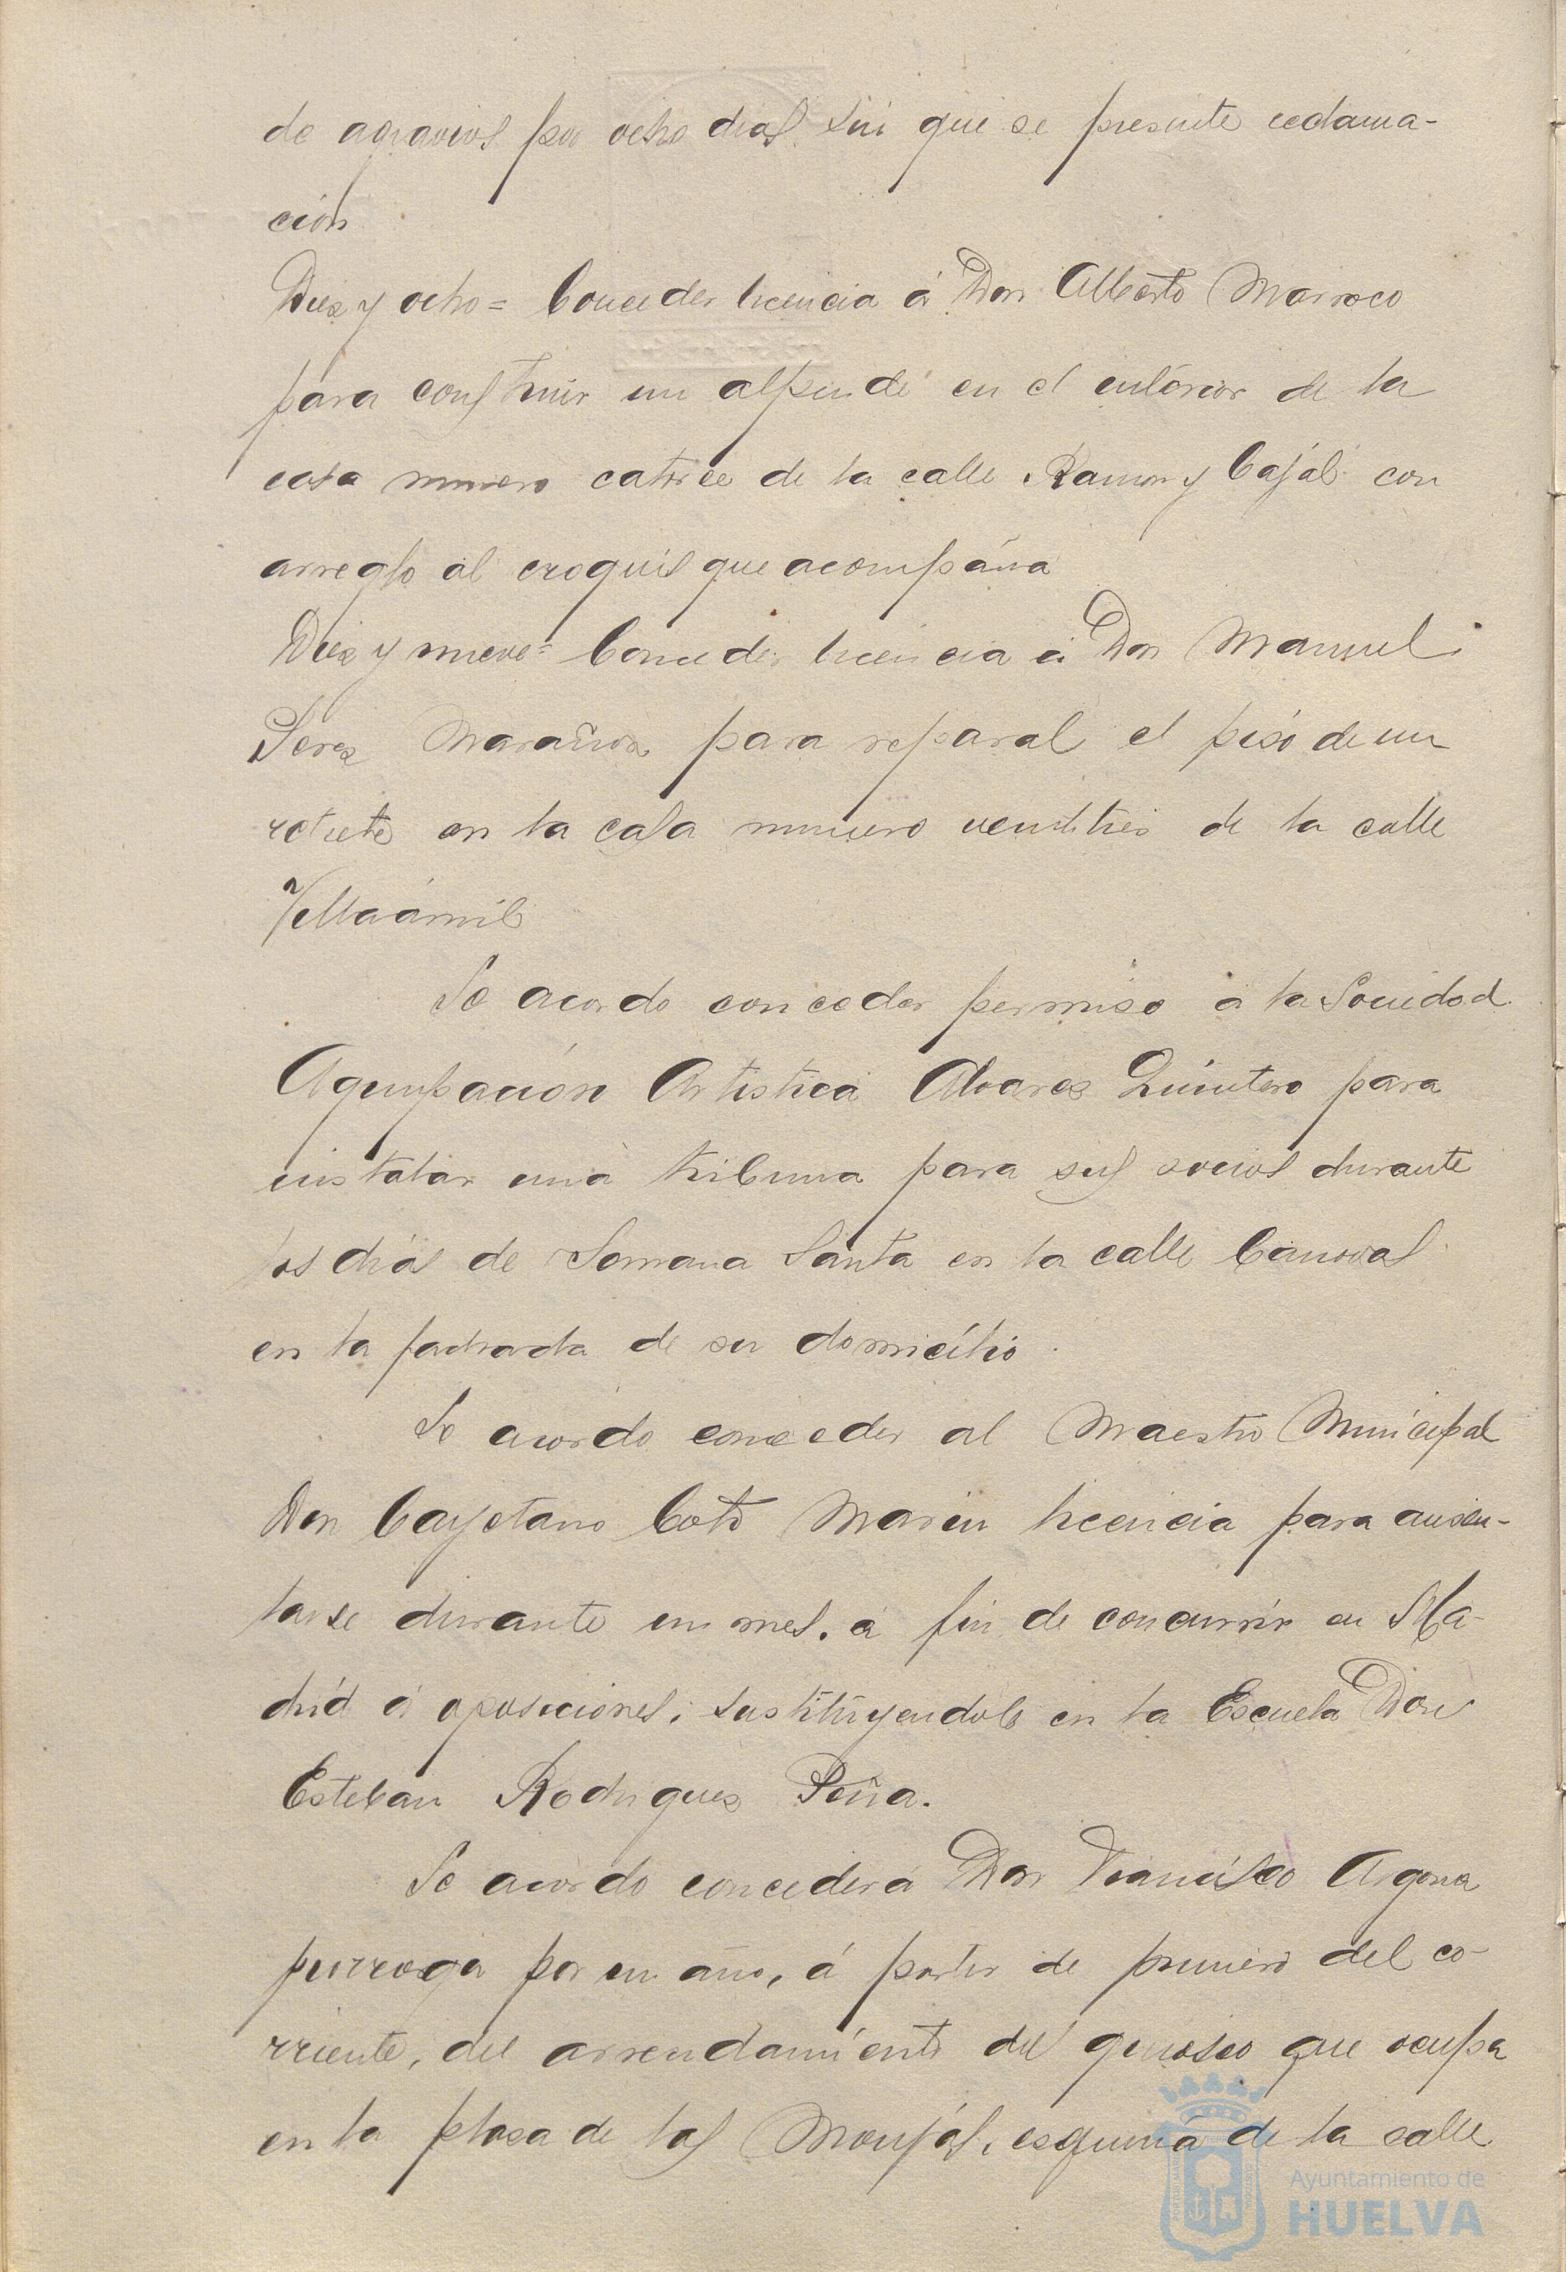 de agravios por ocho dias sin que se presente reclama-
ción
Diez y ocho = Conceder licencia á Don Alberto Marroco
para construir un alpende en el interior de la
casa numero catorce de la calle Ramon y Cajal con
arreglo al croquis que acompaña
Diez y nueve = Conceder licencia á Don Manuel
Perez Marañon para reparar el piso de un
retrete en la casa numero veintitres de la calle
Villaamil
Se acordo conceder permiso a la Sociedad
Agrupación Artistica Alvarez Quintero para
instalar una tribuna para sus socios durante
los dias de Semana Santa en la calle Canovas
en la fachada de su domicilio.
Se acordo conceder al Maestro Municipal
Don Cayetano Coto Marin licencia para ausen-
tarse durante un mes, á fin de concurrir en Ma-
drid á oposiciones, sustituyendole en la Escuela Don
Esteban Rodriguez Peña.
Se acordo conceder á Don Francisco Argona
prorroga por un año, á partir de primero del co-
rriente, del arrendamiento del quiosco que ocupa
en la plaza de las Monjas, esquina de la calle
Ayuntamiento de
HUELVA